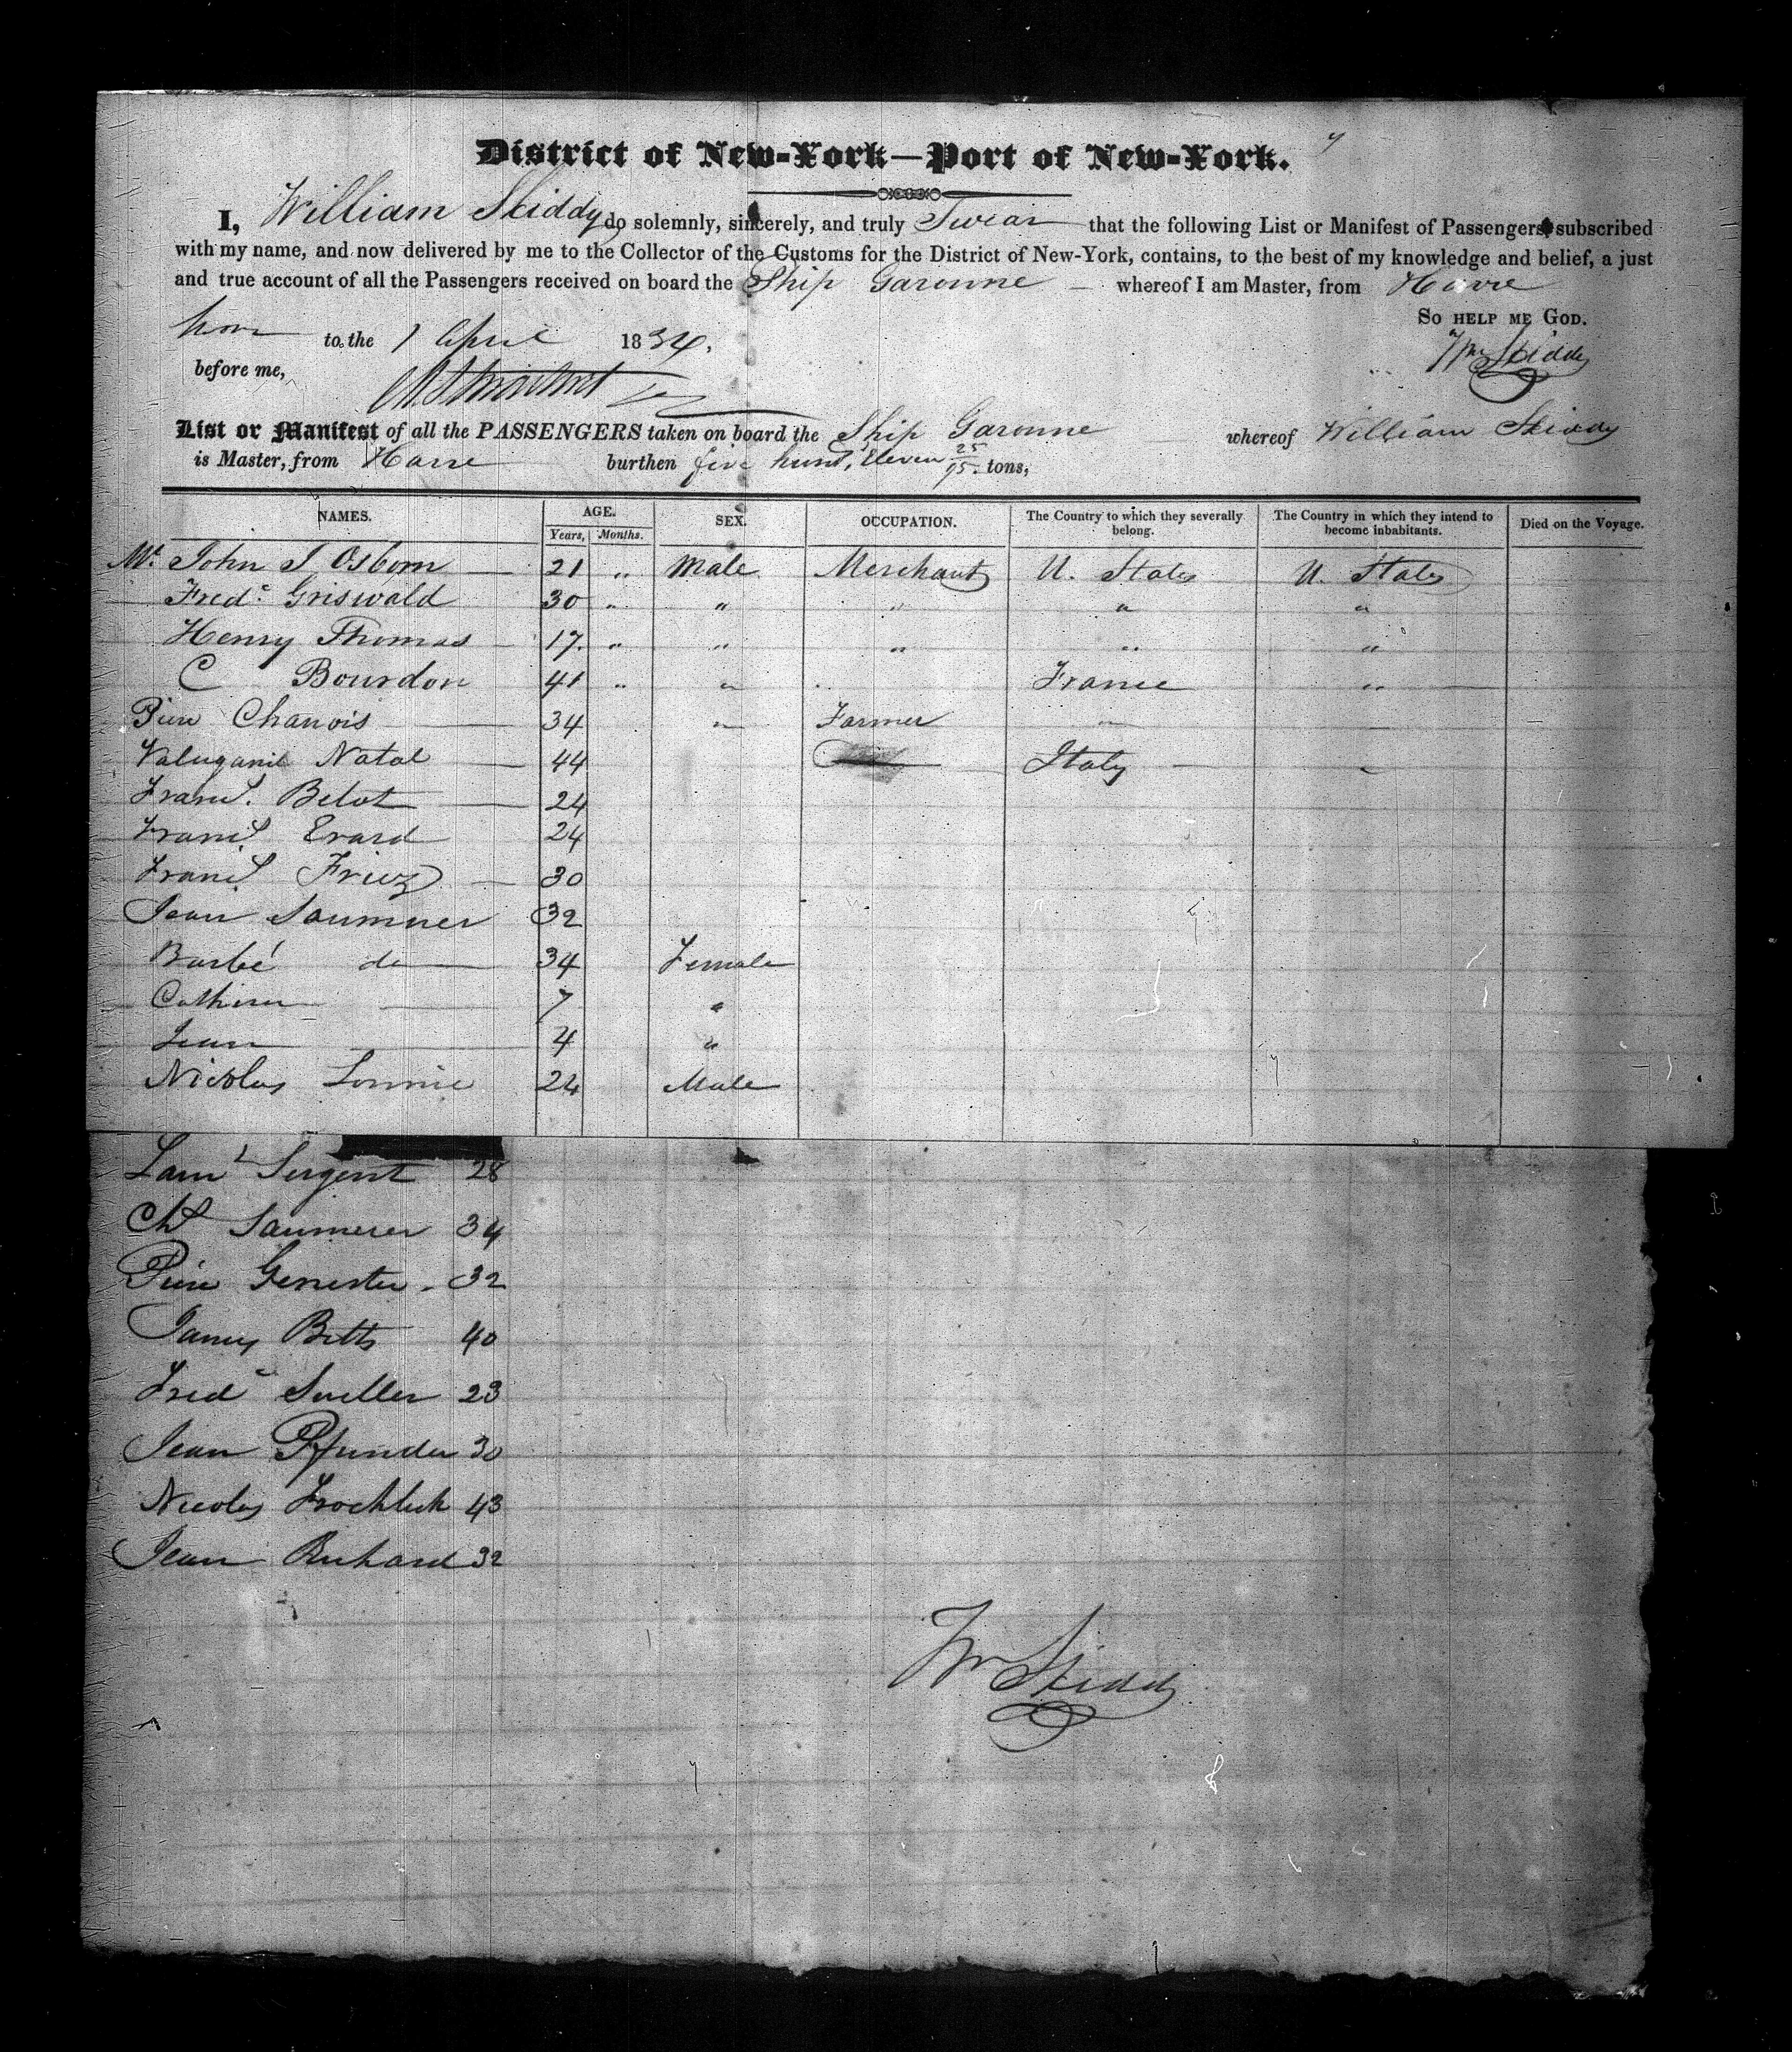 District of New-York—Port of New-York.
I, William Skiddy do solemnly, sincerely, and truly Swear that the following List or Manifest of Passengers subscribed
with my name, and now delivered by me to the Collector of the Customs for the District of New-York, contains, to the best of my knowledge and belief, a just
and true account of all the Passengers received on board the Ship Garonne whereof I am Master, from Havre
So help me God.
Sworn to the 1 April 1834.
Wm Skiddy
before me,
List or Manifest of all the PASSENGERS taken on board the Ship Garonne whereof William Skiddy
is Master, from Havre burthen five hund, Eleven 25/95 tons,
NAMES. AGE. SEX. OCCUPATION. The Country to which they severally belong. The Country in which they intend to become inhabitants. Died on the Voyage.
Years, Months.
Mr. John S Osborn 21 " Male Merchant U. States U. States
Fredc Griswald 30 " " " " "
Henry Thomas 17 " " " " "
C Bourdon 41 " " " France "
Piere Chanois 34 " Farmer "
Natal 44 Italy "
Frans. Belot 24
Frans. Erard 24
Frans. Friez 30
Jean Saumner 32
Barbé do 34 Female
Catherin 7 "
Jean 4 "
Nicolas 24 Male
Lamt Sergent 28
Chs Saumerer 34
Piere Genester 32
James Betts 40
Fredc Sueller 23
Jean Pfunder 30
Nicolas Frochlich 43
Jean Richard 32
Wm Skiddy